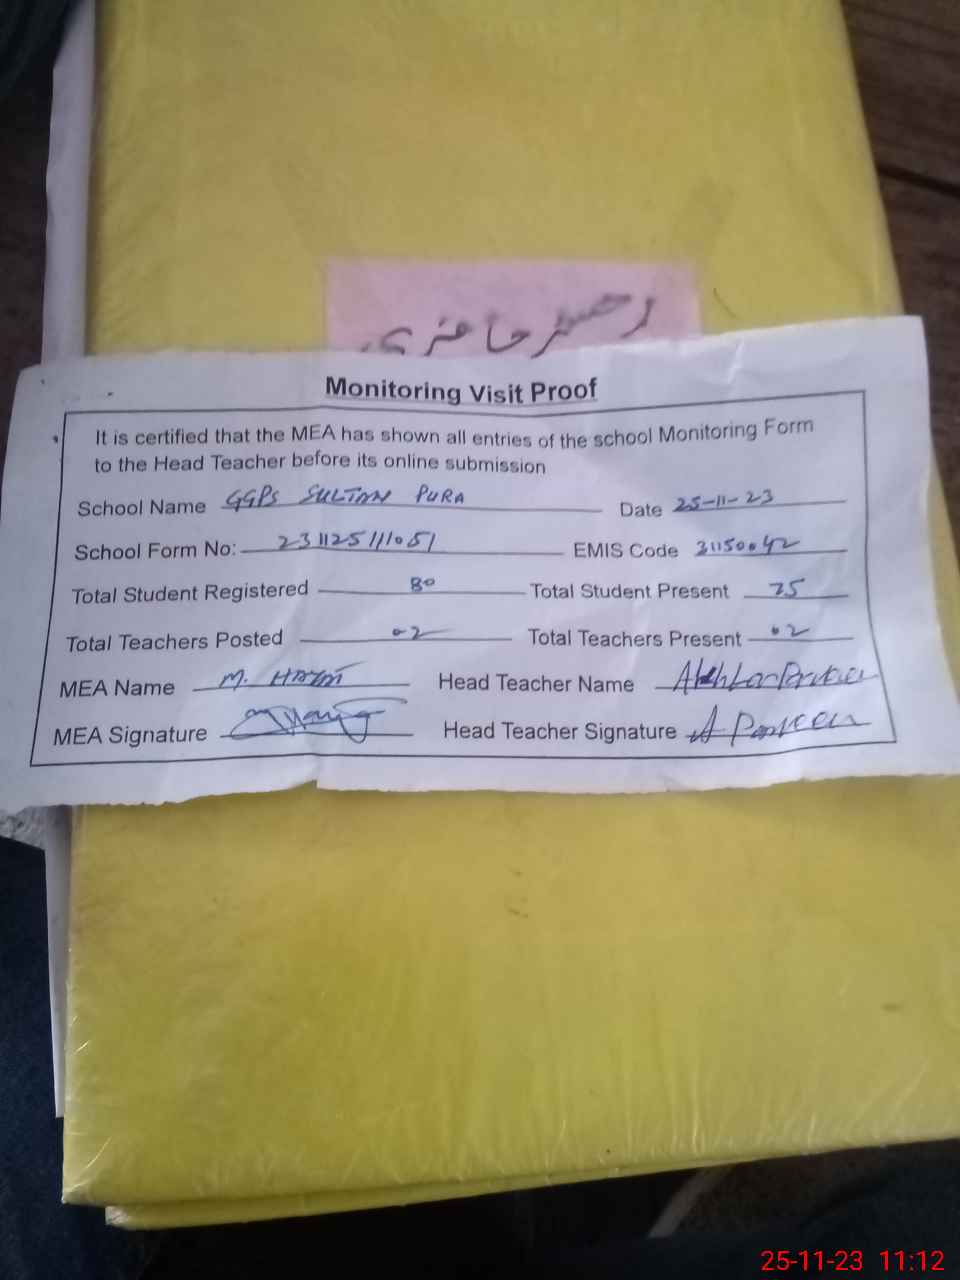 رجسٹر حاضری
Monitoring Visit Proof
It is certified that the MEA has shown all entries of the school Monitoring Form
to the Head Teacher before its online submission
School Name GGPS SULTAN PURA Date 25-11-23
School Form No: 231125111051 EMIS Code 31150042
Total Student Registered 80 Total Student Present 75
Total Teachers Posted 02 Total Teachers Present 02
MEA Name M. Head Teacher Name Akhtar Parveen
MEA Signature Head Teacher Signature A Parveen
25-11-23 11:12